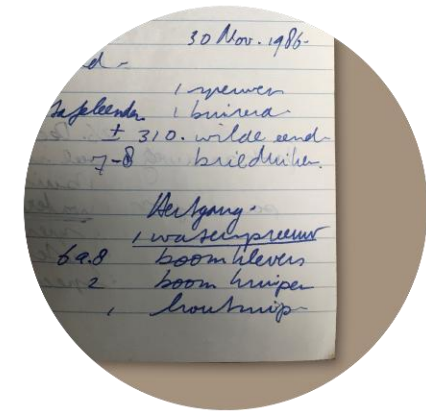 30 Nov. 1986.
d -
1 sperwer
Tafeleenden 1 buizerd
± 310. wilde eend
7-8 brilduiker.
Hertgang.
1 waterspreeuw
6 a. 8 boomklevers
2 boomkruiper
1 houtsnip